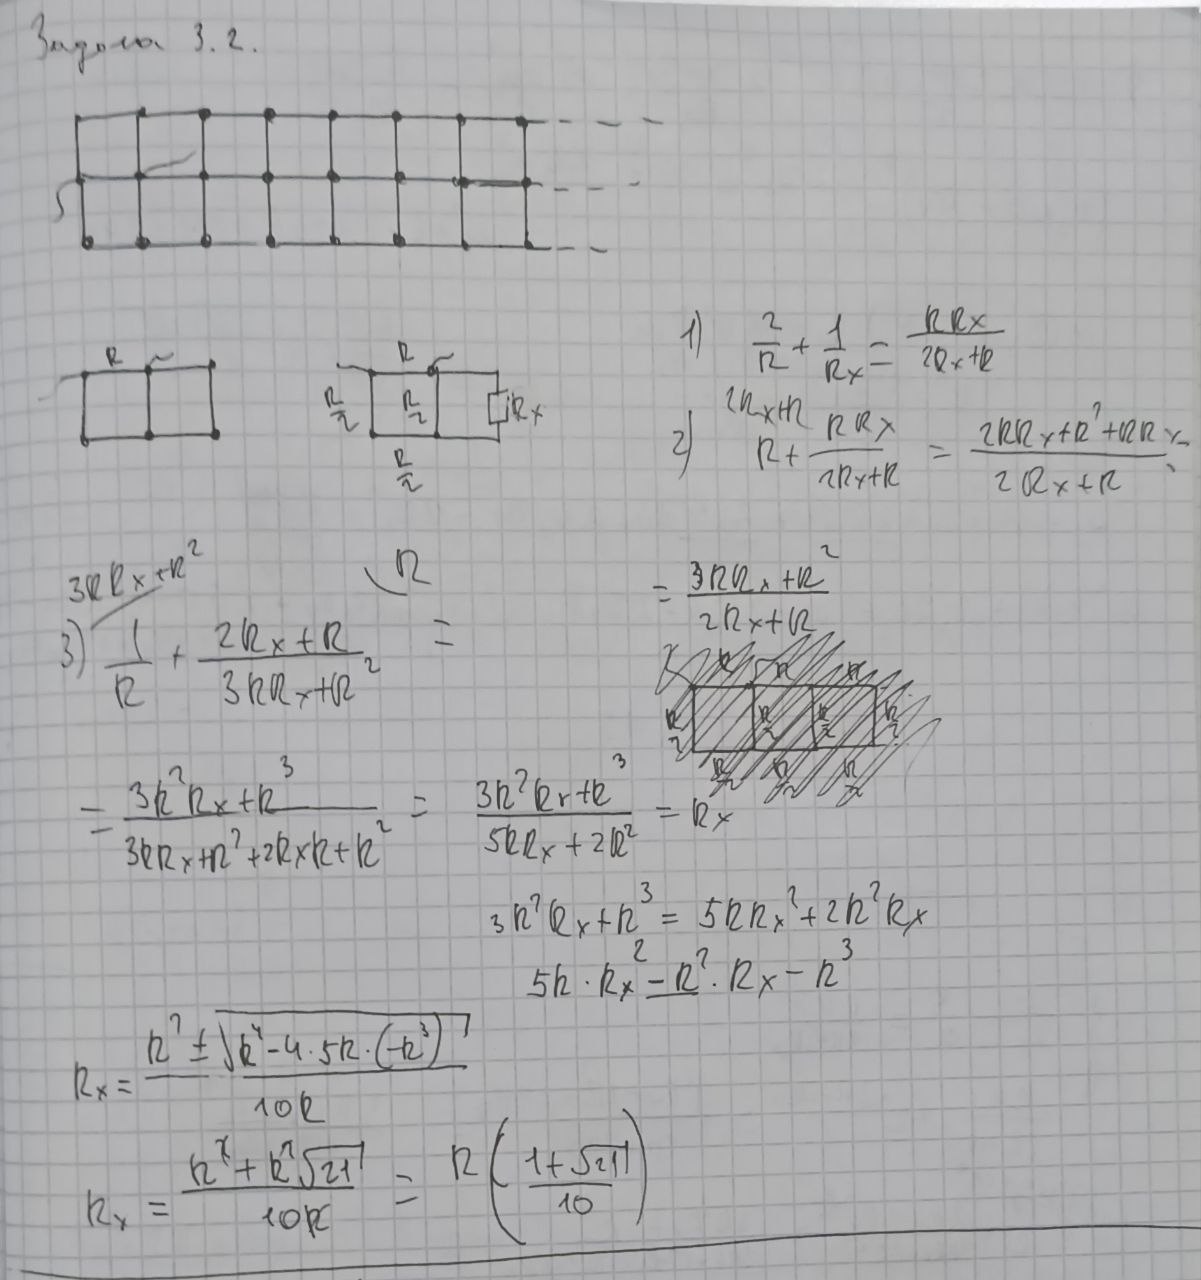 Задача 3.2.
R
R
R/2 R/2 Rx
R/2
1) 2/R + 1/Rx = RRx/(2Rx+R)
2Rx+R
2) R + RRx/(2Rx+R) = (2RRx+R²+RRx)/(2Rx+R) =
= (3RRx+R²)/(2Rx+R)
3RRx+R² R
3) 1/R + (2Rx+R)/(3RRx+R²) =
= (3R²Rx+R³)/(3RRx+R²+2RxR+R²) = (3R²Rx+R³)/(5RRx+2R²) = Rx
3R²Rx+R³ = 5RRx²+2R²Rx
5R·Rx²-R²·Rx-R³
Rx = (R² ± √(R⁴-4·5R·(-R³)))/10R
Rx = (R²+R²√21)/10R = R((1+√21)/10)